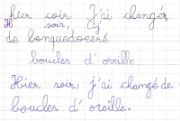 hier soir J'ai changér
H soir, j'
de
boucles d'oreille.
Hier soir, j'ai changé de
boucles d'oreille.